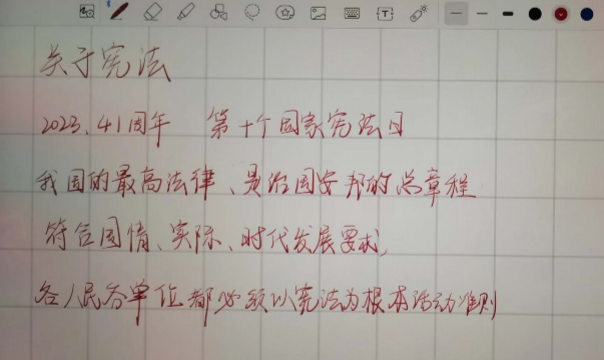 关于宪法
2023.41周年 第十个国家宪法日
我国的最高法律、是治国安邦的总章程
符合国情、实际、时代发展要求,
各人民各单位都必须以宪法为根本活动准则